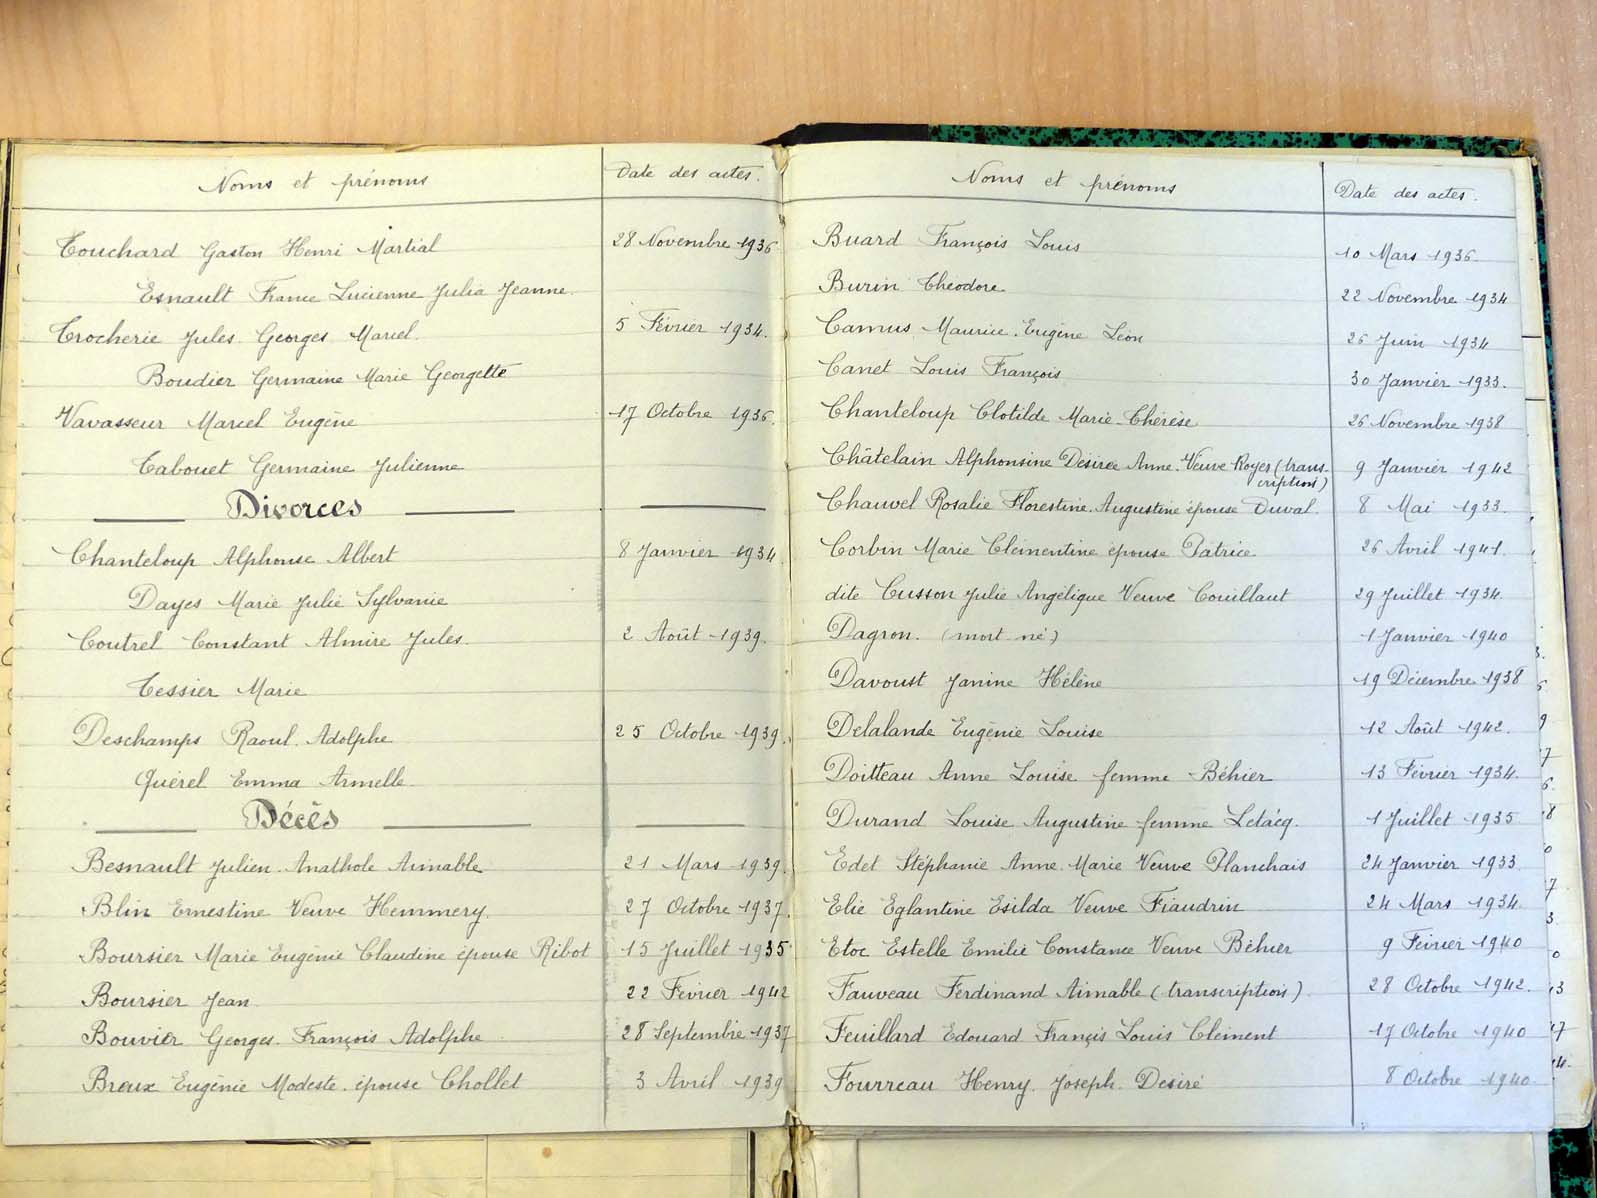 Noms et prénoms Date des actes.
Touchard Gaston Henri Martial 28 Novembre 1936
Esnault France Lucienne Julia Jeanne
Trocherie Jules Georges Marcel. 5 Février 1934.
Boudier Germaine Marie Georgette
Vavasseur Marcel Eugène 17 Octobre 1936.
Tabouet Germaine Julienne
Divorces
Chanteloup Alphonse Albert 8 Janvier 1934
Dayes Marie Julie Sylvanie
Coutrel Constant Almire Jules. 2 Août 1939.
Tessier Marie
Deschamps Raoul Adolphe 25 Octobre 1939.
Quérel Emma Armelle
Décès
Besnault Julien Anathole Aimable 21 Mars 1939.
Blin Ernestine Veuve Hemmery. 27 Octobre 1937.
Boursier Marie Eugénie Claudine épouse Ribot 15 Juillet 1935
Boursier Jean 22 Février 1942
Bouvier Georges François Adolphe 28 Septembre 1937
Breux Eugénie Modeste épouse Chollet 3 Avril 1939
Noms et prénoms Date des actes.
Buard François Louis 10 Mars 1936.
Burin Théodore 22 Novembre 1934
Camus Maurice Eugène Léon 26 Juin 1934
Canet Louis François 30 Janvier 1933.
Chanteloup Clotilde Marie-Thérèse 26 Novembre 1938
Châtelain Alphonsine Désirée Anne Veuve Royer (trans- 9 Janvier 1942
cription)
Chauvel Rosalie Florestine Augustine épouse Duval. 8 Mai 1933.
Corbin Marie Clémentine épouse Patrice 26 Avril 1941.
dite Cusson Julie Angélique Veuve Couillaut 29 Juillet 1934.
Dagron. (mort né) 1 Janvier 1940
Davoust Janine Hélène 19 Décembre 1938
Delalande Eugénie Louise 12 Août 1942.
Doitteau Anne Louise femme Béhier 13 Février 1934.
Durand Louise Augustine femme Letacq. 1 Juillet 1935
Edet Stéphanie Anne Marie Veuve Planchais 24 Janvier 1933
Elie Eglantine Esilda Veuve Fiaudrin 24 Mars 1934
Etoc Estelle Emilie Constance Veuve Béhier 9 Février 1940
Fauveau Ferdinand Aimable (transcription) 28 Octobre 1942.
Feuillard Edouard Françis Louis Clément 17 Octobre 1940
Fourreau Henry Joseph Désiré 8 Octobre 1940